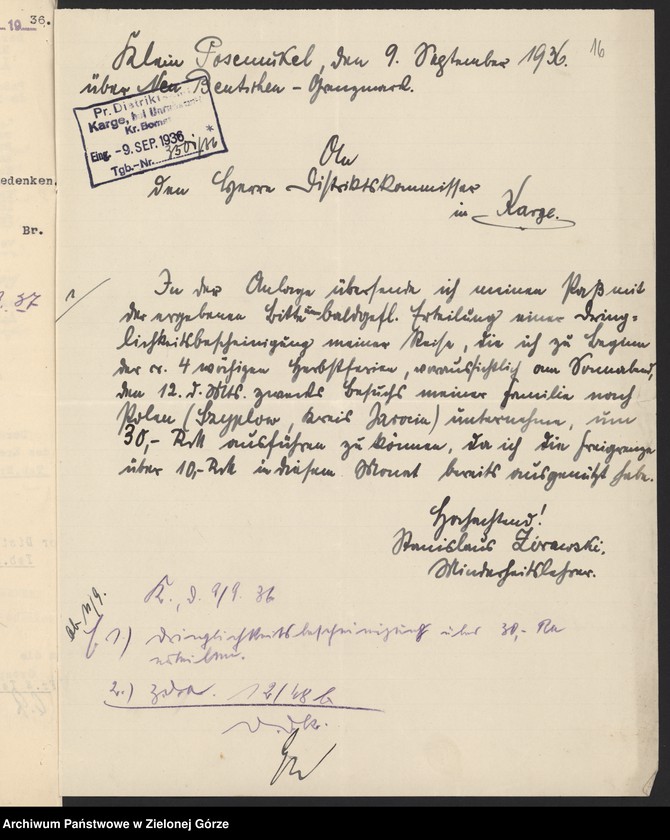 19 36.
16
Klein Posemukel, den 9. September 1936.
über Neu Bentschen - Grenzmark.
Pr. Distrikts
Karge, bei Unruhstadt
Kr. Bomst
Eing. -9. SEP. 1936 *
Tgb.-Nr.
An
den Herrn Distriktskommissar
in Karge.
edenken,
Br.
37
In der Anlage übersende ich meinen Paß mit
der ergebenen Bitte um baldgefl. Erteilung einer Dring-
lichkeitsbescheinigung meiner Reise, die ich zu Beginn
der ca. 4 wöchigen Herbstferien, voraussichtlich am Sonnabend,
den 12. d. Mts. zwecks Besuchs meiner Familie nach
Polen (Szypłow, Kreis Jarocin) unternehme, um
30,- Rmk ausführen zu können, da ich die Freigrenze
über 10,- Rmk in diesem Monat bereits ausgenützt habe.
Hochachtend!
Stanislaus Żórawski,
Minderheitslehrer.
K., d. 9/9. 36
ab 11/9.
1.) Dringlichkeitsbescheinigung über 30,- Rm
erteilen.
2.) z.d.A. 12/48 b
D. Dk.
Archiwum Państwowe w Zielonej Górze